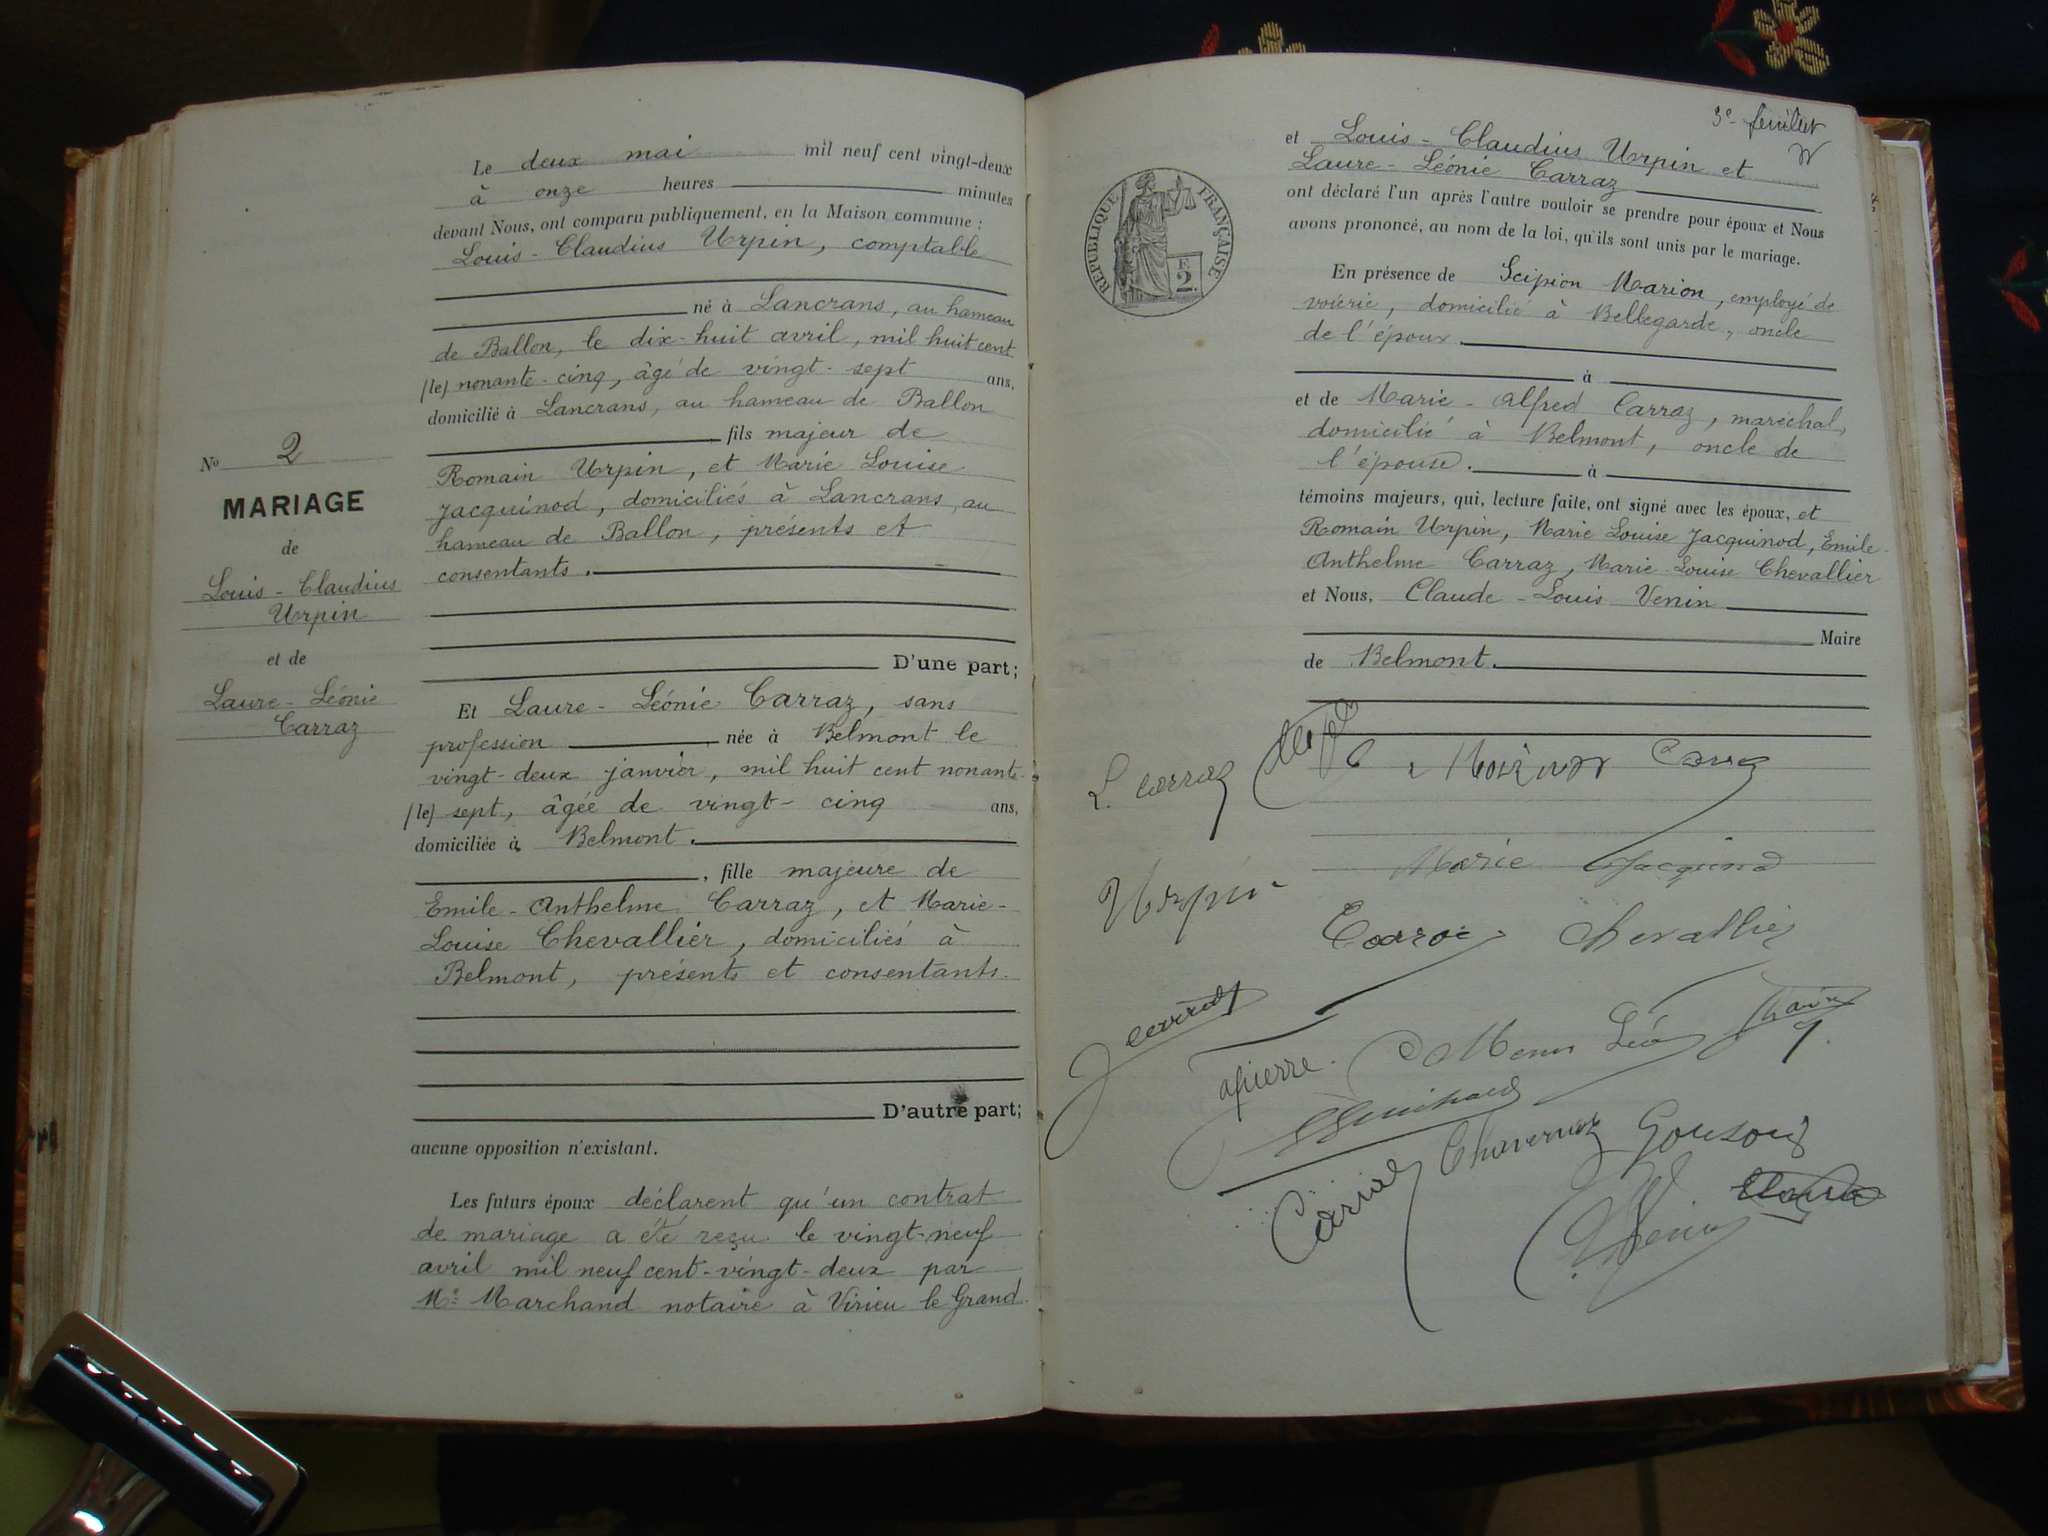 Le deux mai mil neuf cent vingt-deux
à onze heures minutes
devant Nous, ont comparu publiquement, en la Maison commune :
Louis-Claudius Urpin, comptable
né à Lancrans, au hameau
de Ballon, le dix-huit avril, mil huit cent
(le) nonante-cinq, âgé de vingt-sept ans,
domicilié à Lancrans, au hameau de Ballon
fils majeur de
Romain Urpin, et Marie Louise
Jacquinod, domiciliés à Lancrans, au
hameau de Ballon, présents et
consentants.
D'une part;
Et Laure-Léonie Carraz, sans
profession née à Belmont le
vingt-deux janvier, mil huit cent nonante-
(le) sept, âgée de vingt-cinq ans,
domiciliée à Belmont.
, fille majeure de
Emile-Anthelme Carraz, et Marie-
Louise Chevallier, domiciliés à
Belmont, présents et consentants.
D'autre part;
aucune opposition n'existant.
Les futurs époux déclarent qu'un contrat
de mariage a été reçu le vingt-neuf
avril mil neuf cent-vingt-deux par
Me Marchand notaire à Virieu le Grand
No 2
MARIAGE
de
Louis-Claudius
Urpin
et de
Laure-Léonie
Carraz
3e feuillet
RÉPUBLIQUE FRANÇAISE
F.
2
et Louis-Claudius Urpin et
Laure-Léonie Carraz
ont déclaré l'un après l'autre vouloir se prendre pour époux et Nous
avons prononcé, au nom de la loi, qu'ils sont unis par le mariage.
En présence de Scipion Marion, employé de
voierie, domicilié à Bellegarde, oncle
de l'époux.
à
et de Marie-Alfred Carraz, maréchal,
domicilié à Belmont, oncle de
l'épouse. à
témoins majeurs, qui, lecture faite, ont signé avec les époux, et
Romain Urpin, Marie Louise Jacquinod, Emile-
Anthelme Carraz, Marie-Louise Chevallier
et Nous, Claude-Louis Venin
Maire
de Belmont.
L. Carraz Carraz
Marie Jacquinod
Urpin
Chevallier